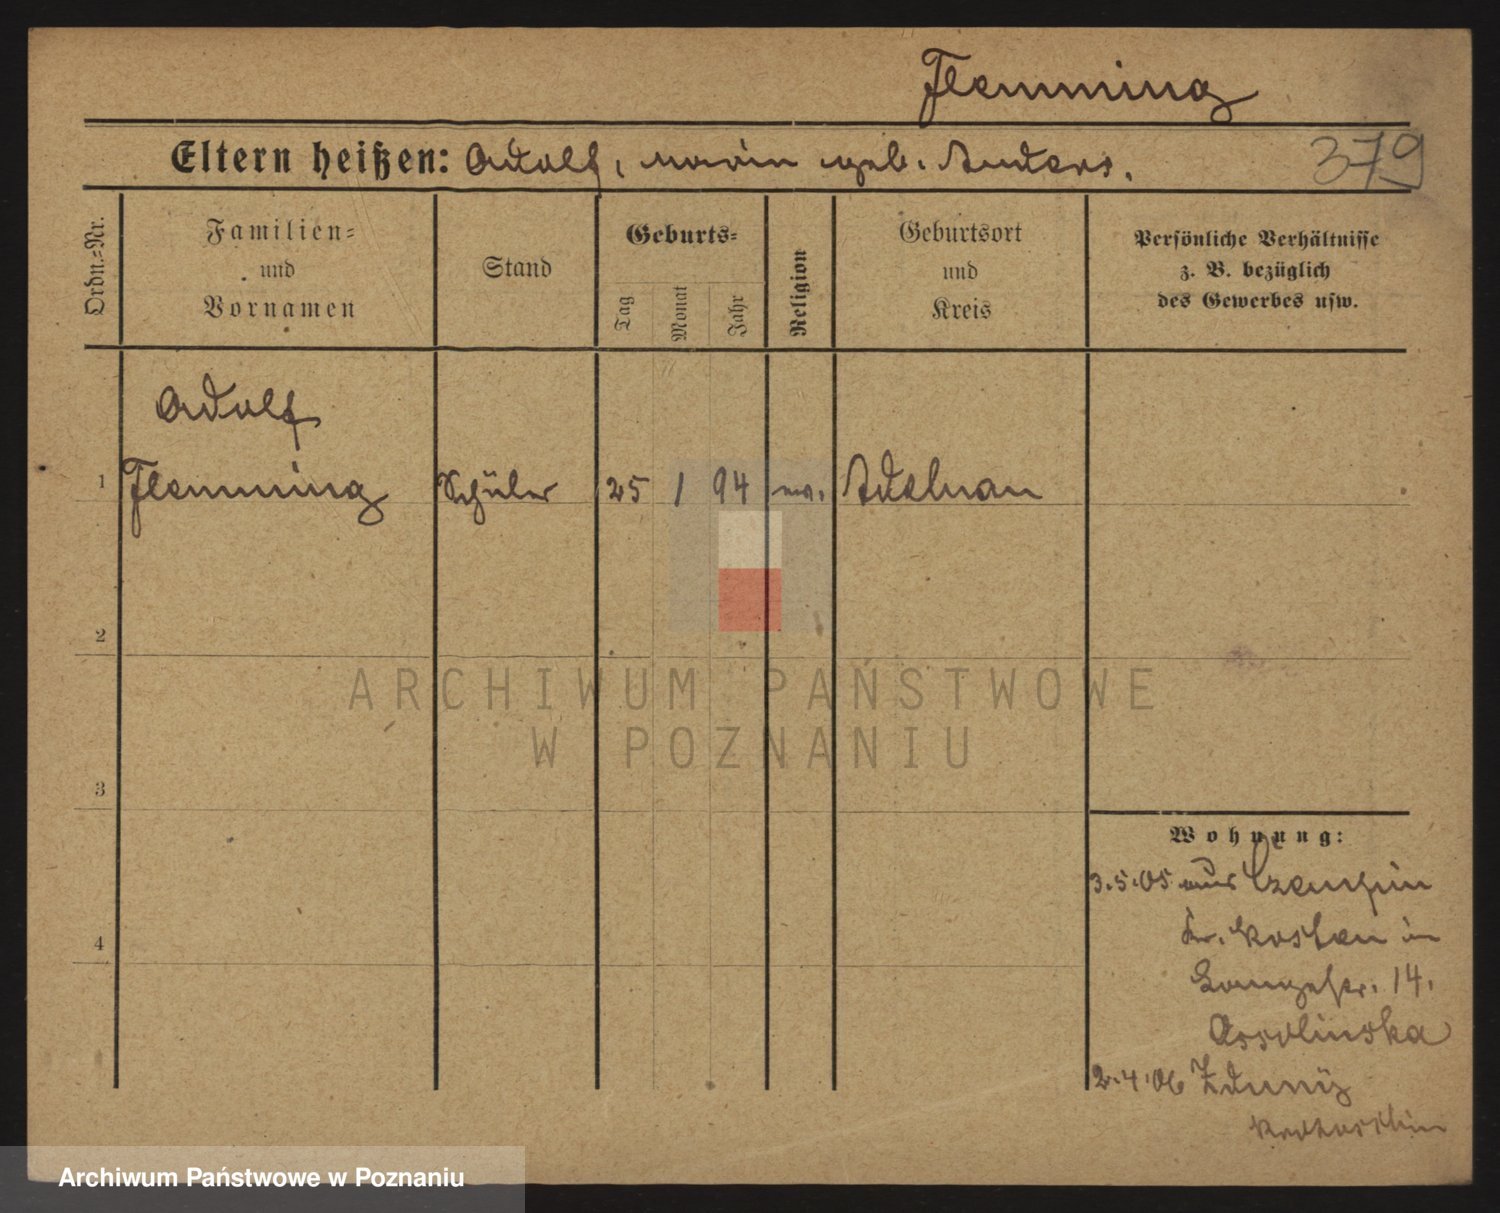 Flemming
Eltern heißen: Adolf, Marie geb. Anders.
379
Ordn.=Nr.
Familien=
und
Vornamen
Stand
Geburts=
Tag
Monat
Jahr
Religion
Geburtsort
und
Kreis
Persönliche Verhältnisse
z. B. bezüglich
des Gewerbes usw.
Adolf
1 Flemming Schüler 25 1 94 ev. Adelnau
2
3
4
ARCHIWUM PAŃSTWOWE
W POZNANIU
Wohnung:
3.5.05 aus Czempin
Kr. Kosten in
Langestr. 14.
Ossolinska
2.4.06 Zduny
Krotoschin
Archiwum Państwowe w Poznaniu